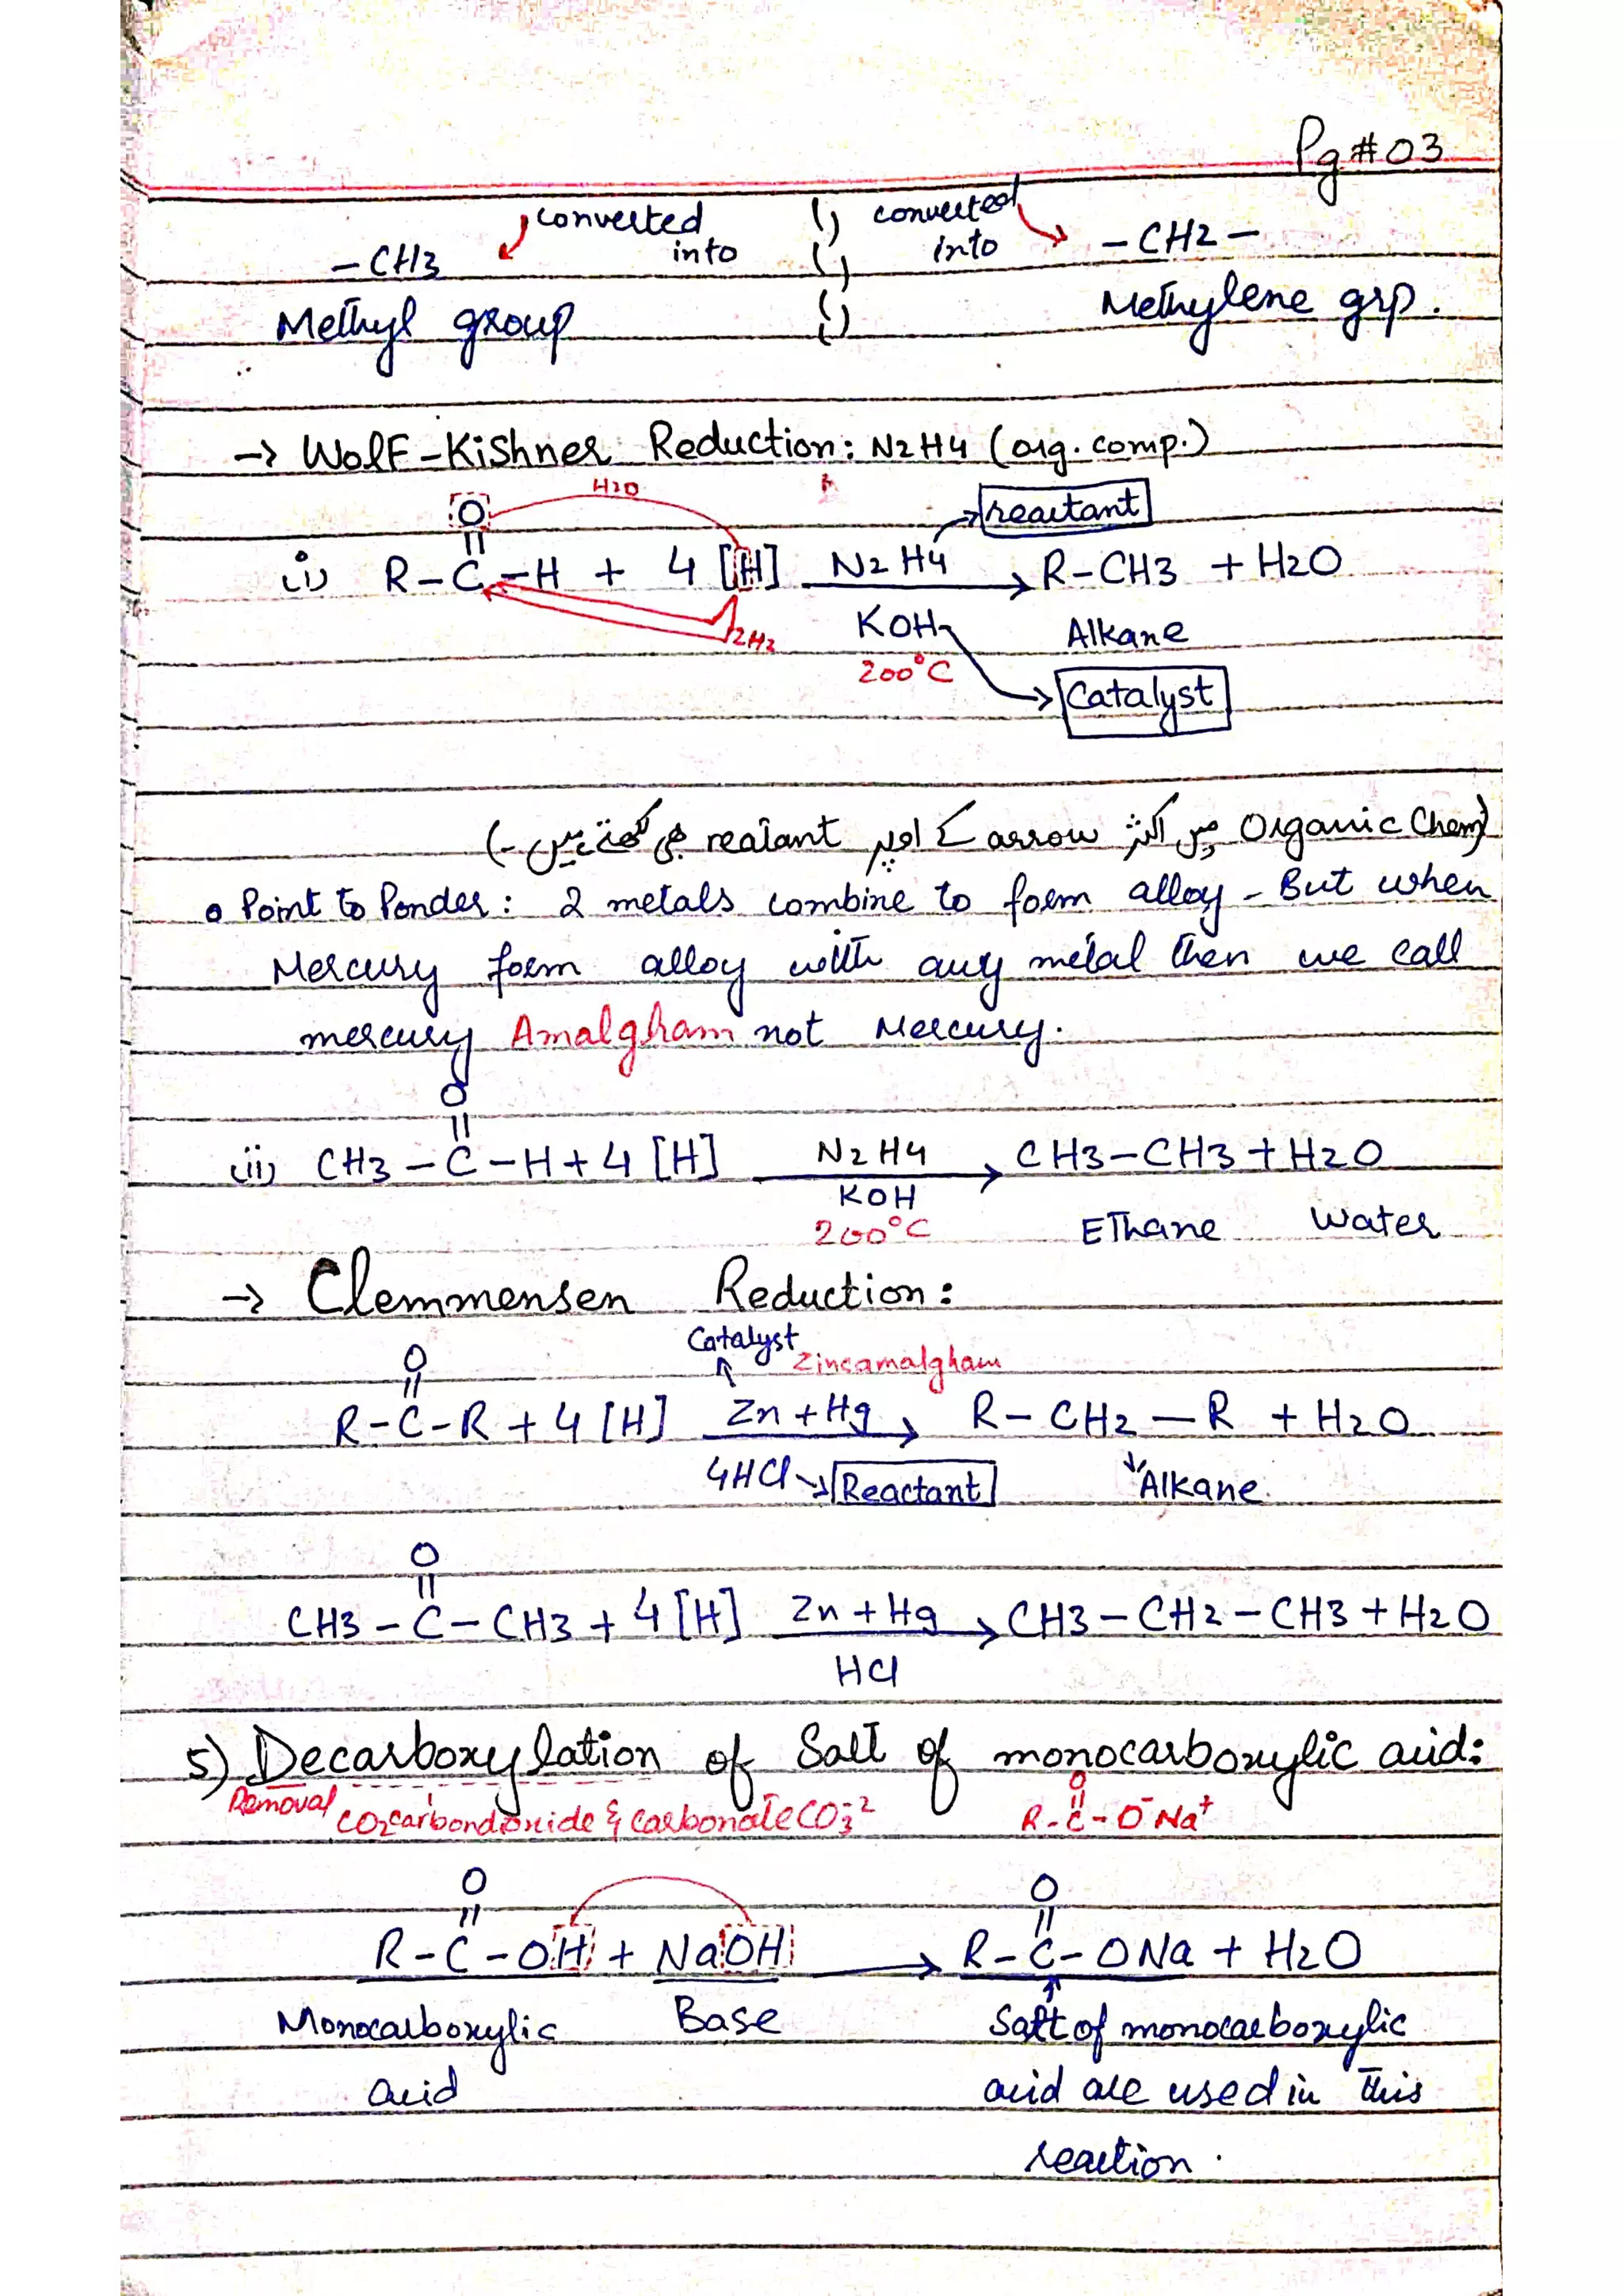 Pg#03
converted converted
-CH3 into into -CH2-
Methyl group Methylene grp.
→ Wolf-Kishner Reduction: N2H4 (org. comp.)
H2O
O reactant
||
i) R-C-H + 4 [H] N2H4 → R-CH3 + H2O
2H2 KOH Alkane
200°C
Catalyst
(Organic Chem میں اکثر arrow کے اوپر reatant بھی لکھتے ہیں-)
• Point to Ponder: 2 metals combine to form alloy - But when
Mercury form alloy with any metal then we call
mercury Amalgham not Mercury.
O
||
ii) CH3-C-H+4 [H] N2H4 → CH3-CH3+H2O
KOH
200°C EThane Water
→ Clemmensen Reduction:
Catalyst
O Zincamalgham
||
R-C-R+4 [H] Zn+Hg → R-CH2-R + H2O
4HCl → Reactant Alkane
O
||
CH3-C-CH3+4[H] Zn+Hg → CH3-CH2-CH3+H2O
HCl
5) Decarboxylation of Salt of monocarboxylic acid:
O
||
Removal CO2carbondioxide & carbonate CO3-2 R-C-O-Na+
O O
|| ||
R-C-OH + NaOH → R-C-ONa + H2O
Monocarboxylic Base Salt of monocarboxylic
acid acid are used in this
reaction.